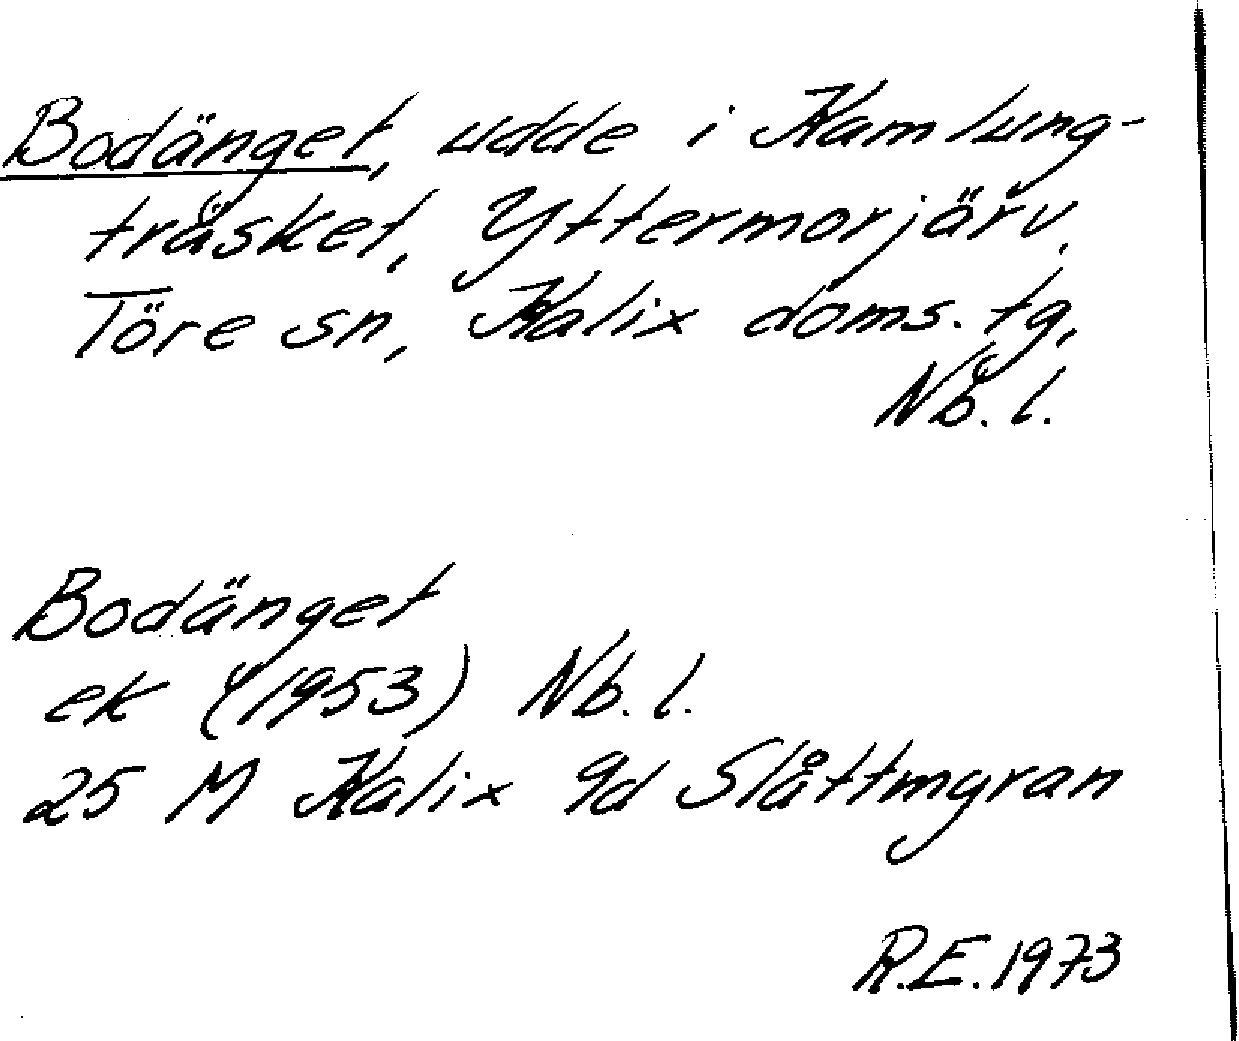 Bodänget, udde i Kamlung-
träsket, Yttermorjärv,
Töre sn, Kalix doms. tg,
Nb. l.
Bodänget
ek (1953) Nb. l.
25 M Kalix 9d Slåttmyran
R.E. 1973